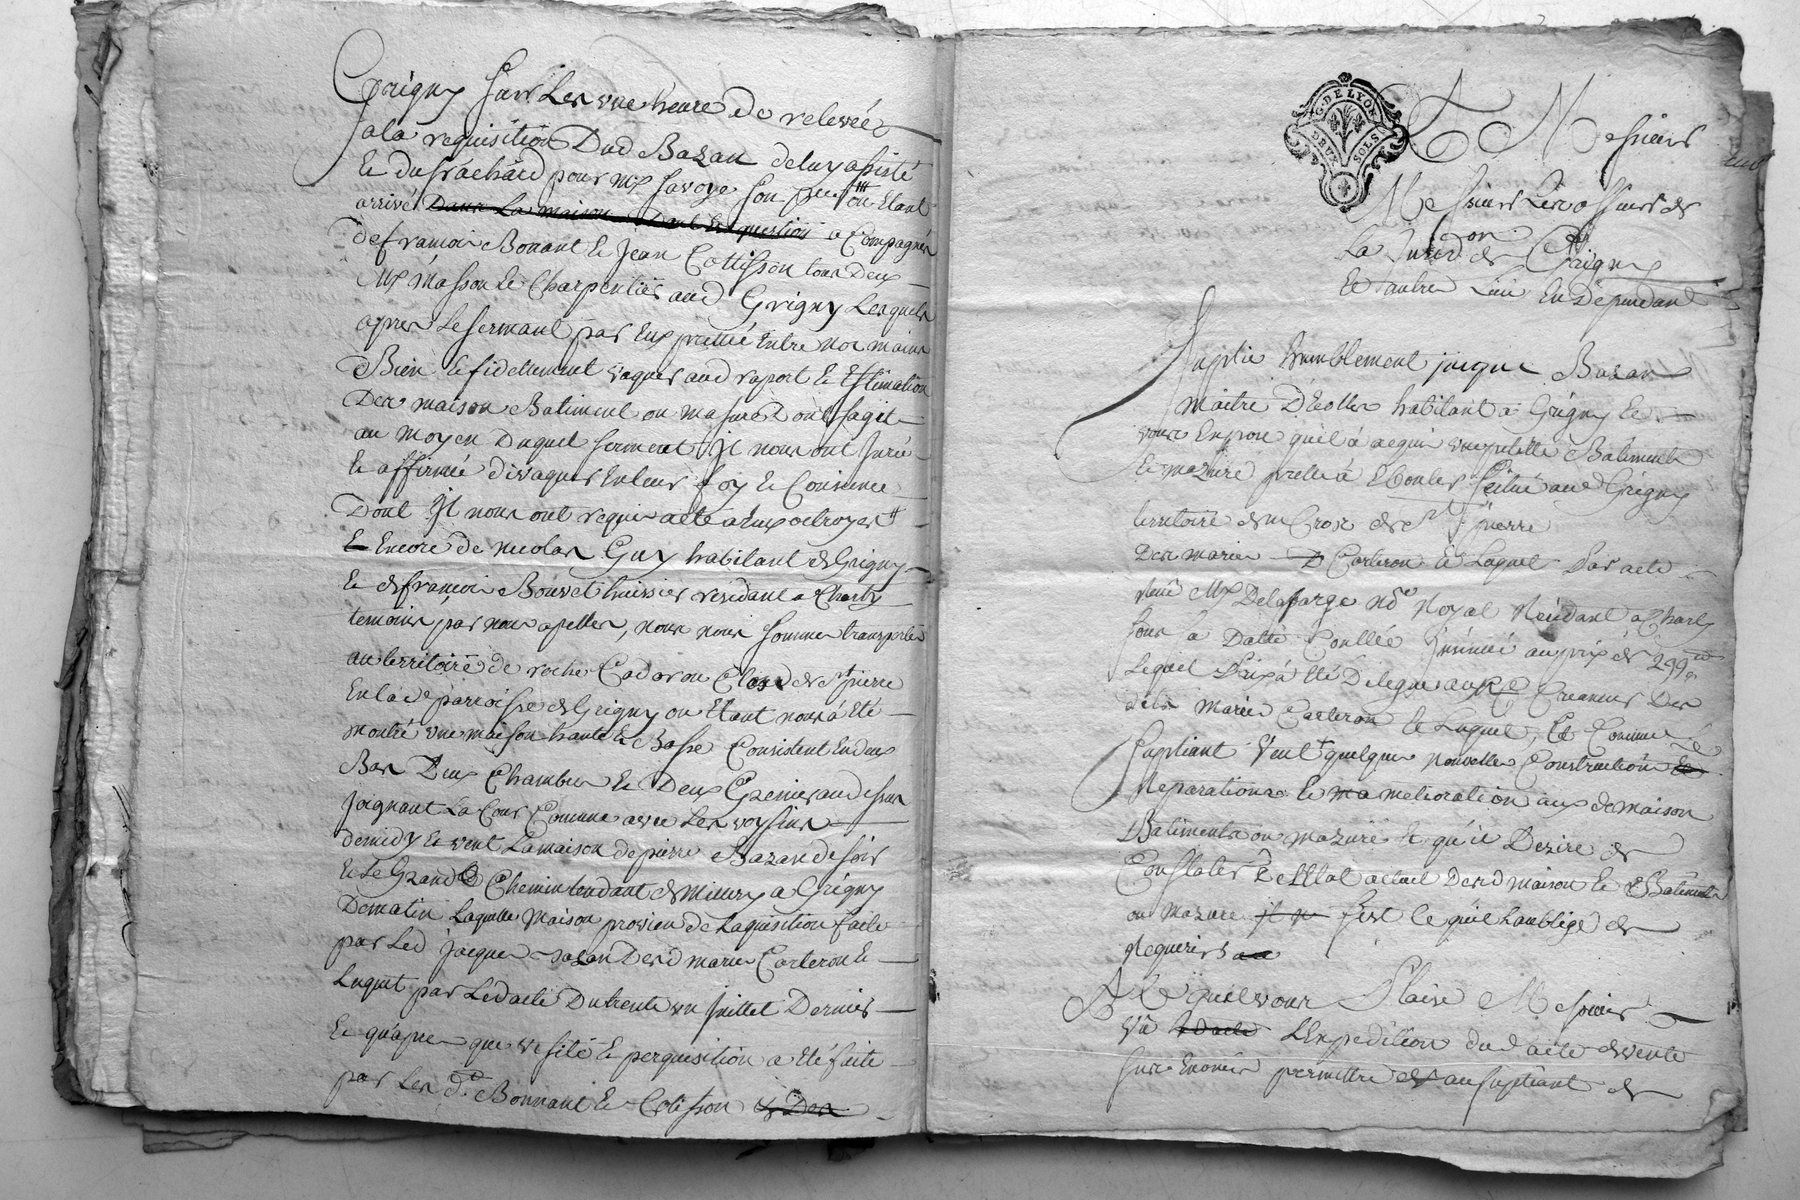 Grigny sur Les une heure de relevée
ala requisition Dud Bazan deluy assisté
arrivé Dans La maison Dont Est question a Compagnés
de francois Bonant Et Jean Cottisson tous Deux
Mes Masson Et Charpentier aud Grigny Lesquels
apres Le serment par Eux presté Entre nos mains
Bien Et fidellement vaquer aud raport Et Estimation
Des maison Batiment ou masure Dont sagit
au moyen Duquel serment Jl nous ont Juré
Et affirmé di vaquer En leur foy Et Consience
Dont Jl nous ont requis acte a Eux octroyer
Et Encore de nicolas Guy habitant de Grigny
Et de francois Bouvet huissier residant a Charly
temoins par nous apelles, nous nous sommes transportés
au territoire de roche Cador ou Clos de St pierre
En lad parroisse de Grigny ou Etant nous a Eté
montré une maison haute Et Basse Consistent En deux
Bas Deux Chambres Et Deux Greniers au dessus
joignant La Cour Commune avec Les voysins
de midy Et vent La maison de pierre Bazan de soir
Et Le Grand Chemin tendant de Millery a Grigny
De matin Laquelle Maison provien de Laquisition faite
par Led jacque Bazan Desd maries Carteron Et
Luquet par Ledacte Du trente un juillet Dernier
Et qu'apres que visite Et perquisition a Eté faite
par Les de Bonnant Et Cotisson Et Des
G. DE LYON
DEUX SOLS
A Messieurs
Messieurs Les officiers de
La Juridon de Grigny
Et autres Lieu En Dependant
Suplie humblement jacque Bazan
Maitre D'Ecolle habitant a Grigny Et
vous Expose quil a acquis une petitte Batiment
Et mazure prette a Ecouler scitué aud Grigny
territoire de la Croix de St pierre
Des maries Carteron Et Luquet Par acte
Reçu Me Delaforge Nre Royal Residant a Charly
sous sa Datte Conllée Jnsinué au prix de 299
Lequel Prix a Eté Delegué aux Creancier Des
dits Mariés Carteron Et Luquet, Et Comme Le
Supliant veut quelque nouvelle Construction Et
Reparations Et ma melioration aux de maison
Batiments ou mazure Et qu'il Dezire de
Constater L'Etat actuel Desd maison Et Batiments
ou mazure jl se C'est Ce qui L'aublige de
Requerir
A Ce quil vous Plaise Messieurs
Vû L'Expedition dud acte de vente
sus Enoncé permettre au supliant de